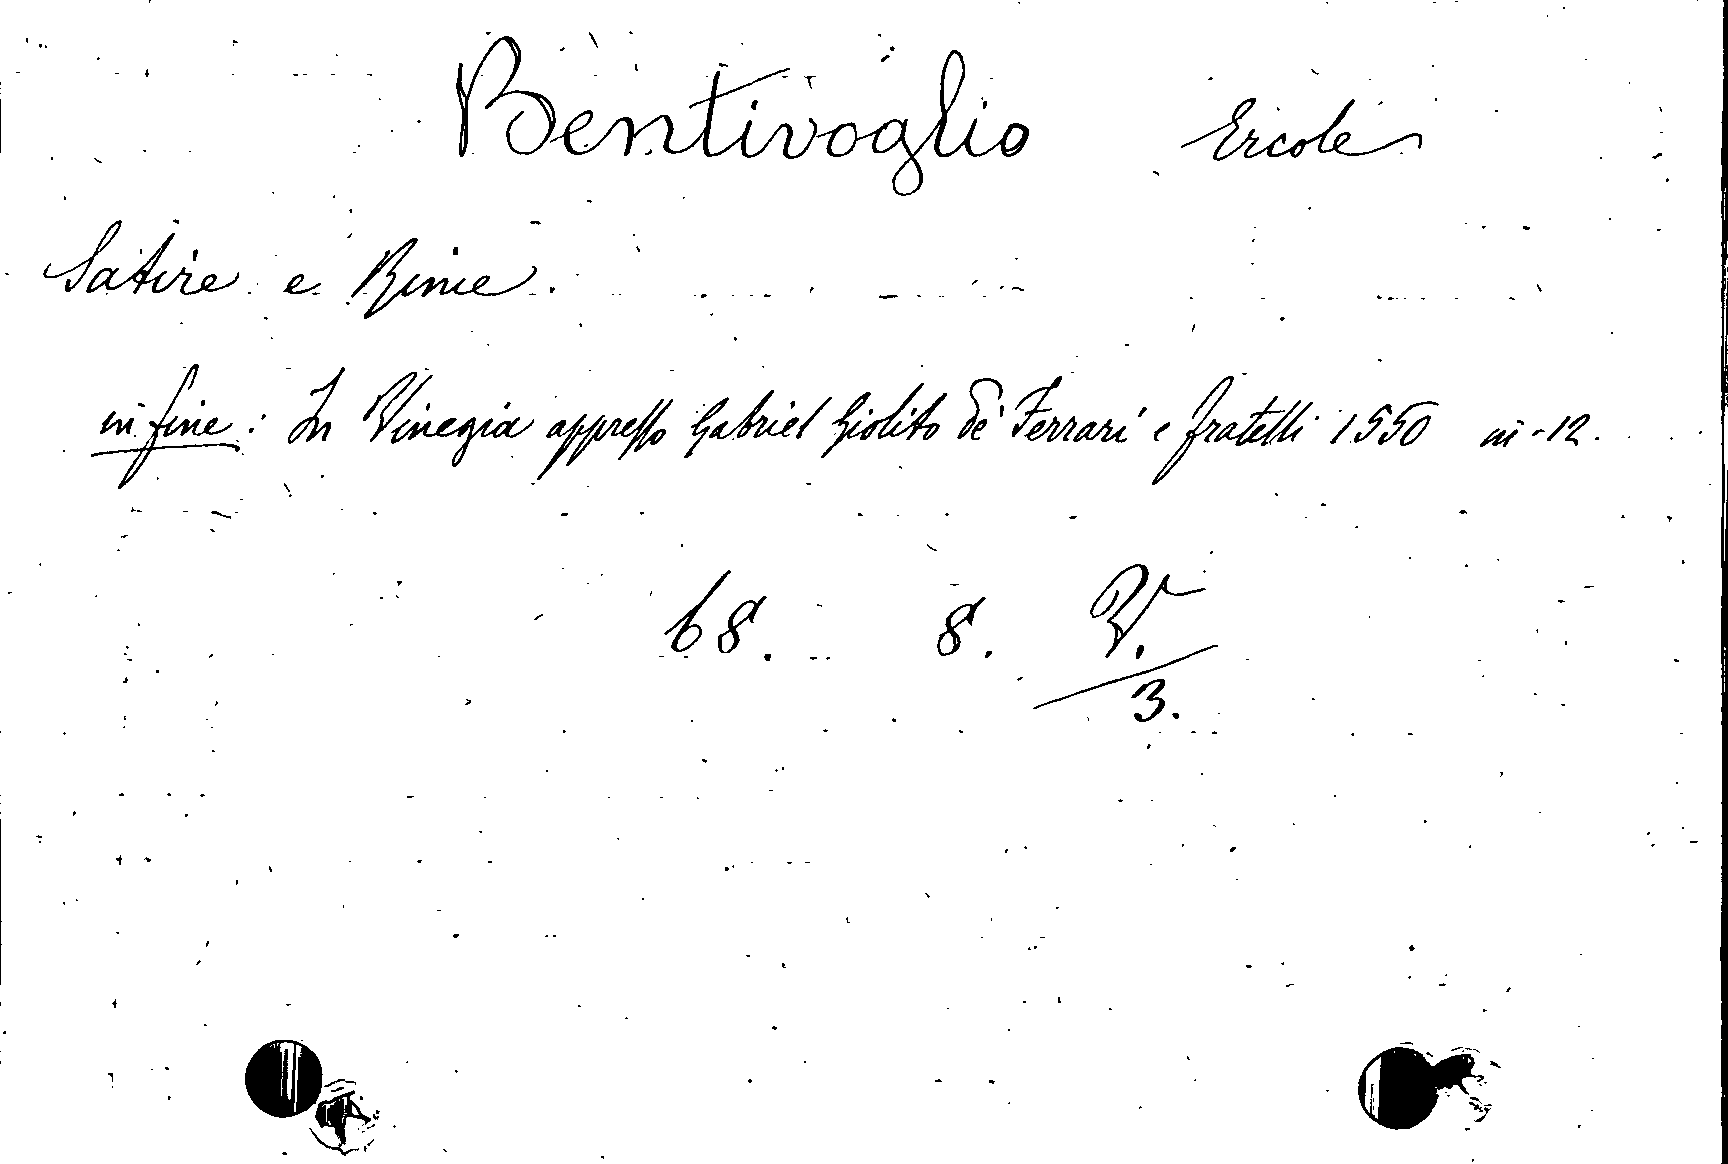 Bentivoglio Ercole
Satire e Rime.
in fine: In Vinegia appresso Gabriel Giolito de' Ferrari e fratelli 1550 in-12.
68. 8. V.
3.